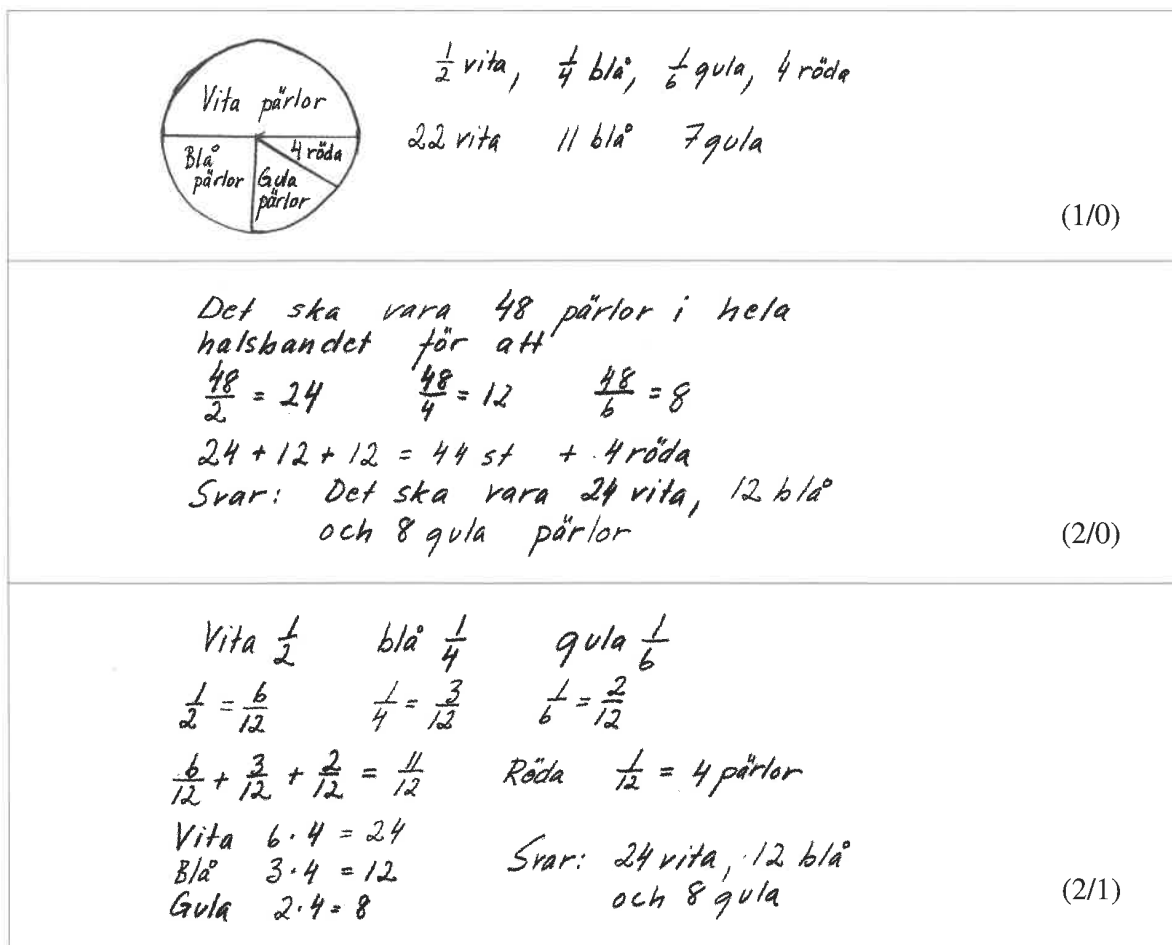 Vita pärlor
Blå pärlor
Gula pärlor
4 röda
1/2 vita, 1/4 blå, 1/6 gula, 4 röda
22 vita 11 blå 7 gula
(1/0)
Det ska vara 48 pärlor i hela
halsbandet för att
48/2 = 24 48/4 = 12 48/6 = 8
24 + 12 + 12 = 44 st + 4 röda
Svar: Det ska vara 24 vita, 12 blå
och 8 gula pärlor
(2/0)
Vita 1/2 blå 1/4 gula 1/6
1/2 = 6/12 1/4 = 3/12 1/6 = 2/12
6/12 + 3/12 + 2/12 = 11/12 Röda 1/12 = 4 pärlor
Vita 6 · 4 = 24
Blå 3 · 4 = 12
Gula 2 · 4 = 8
Svar: 24 vita, 12 blå
och 8 gula
(2/1)